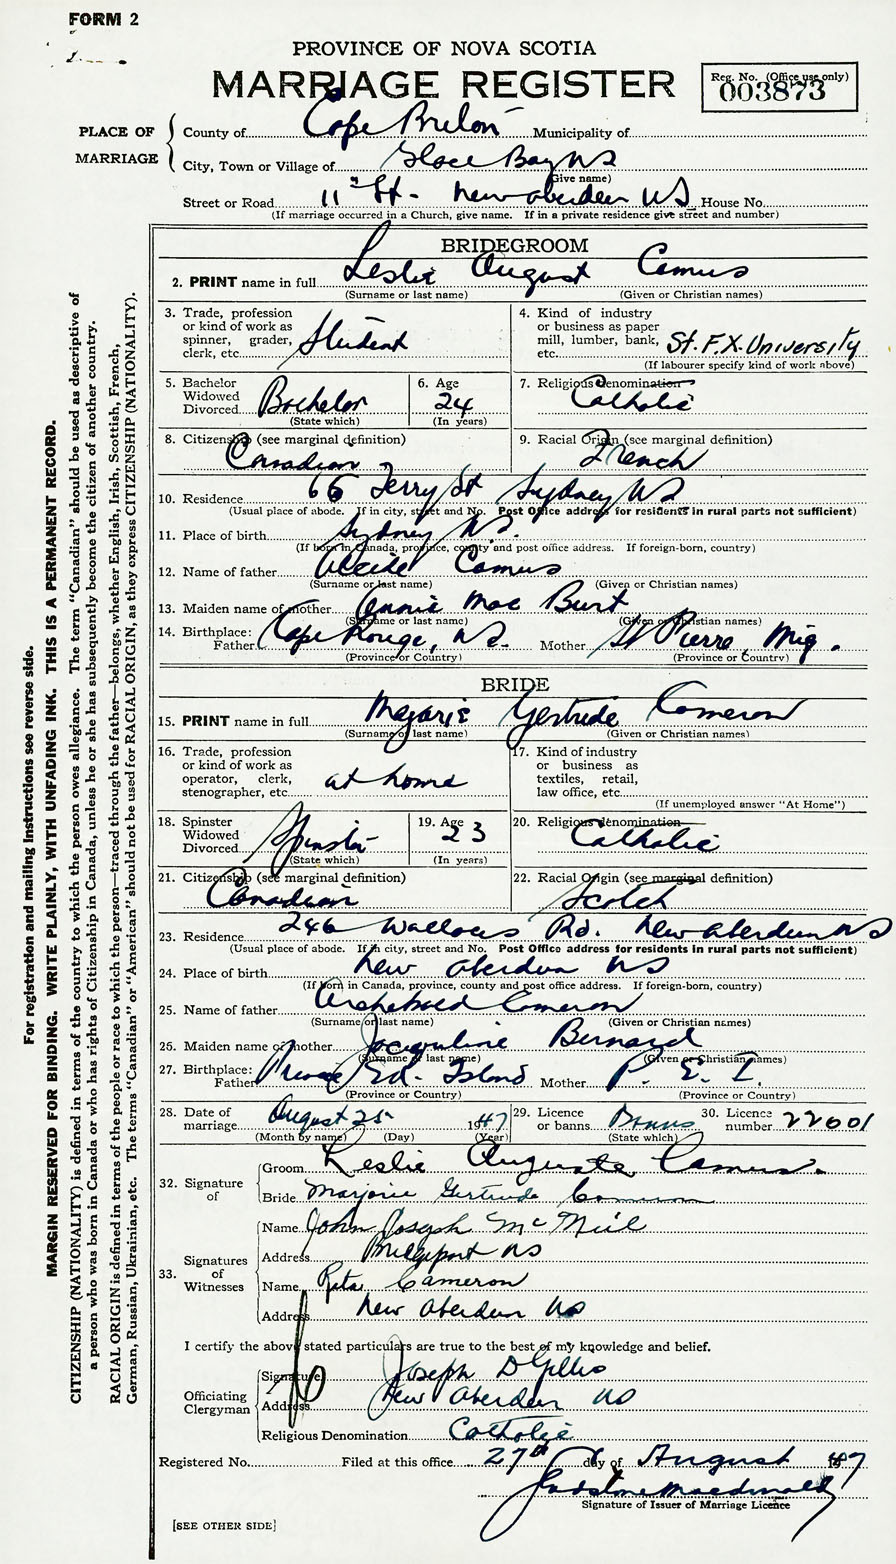 FORM 2
PROVINCE OF NOVA SCOTIA
MARRIAGE REGISTER
Reg. No. (Office use only)
003873
PLACE OF MARRIAGE
County of Cape Breton Municipality of
City, Town or Village of Glace Bay NS
(Give name)
Street or Road 11th St - New Aberdeen NS House No.
(If marriage occurred in a Church, give name. If in a private residence give street and number)
BRIDEGROOM
2. PRINT name in full Leslie August Camus
(Surname or last name) (Given or Christian names)
3. Trade, profession or kind of work as spinner, grader, clerk, etc. Student
4. Kind of industry or business as paper mill, lumber, bank, etc. St. F.X. University
(If labourer specify kind of work above)
5. Bachelor Widowed Divorced Bachelor
(State which)
6. Age 24
(In years)
7. Religious denomination Catholic
8. Citizenship (see marginal definition) Canadian
9. Racial Origin (see marginal definition) French
10. Residence 66 Terry St Sydney NS
(Usual place of abode. If in city, street and No. Post Office address for residents in rural parts not sufficient)
11. Place of birth Sydney N.S.
(If born in Canada, province, county and post office address. If foreign-born, country)
12. Name of father Alcide Camus
(Surname or last name) (Given or Christian names)
13. Maiden name of mother Annie Mae Burt
(Surname or last name) (Given or Christian names)
14. Birthplace: Father Cape Rouge, NS. Mother St Pierre, Miq.
(Province or Country) (Province or Country)
BRIDE
15. PRINT name in full Marjorie Gertrude Cameron
(Surname or last name) (Given or Christian names)
16. Trade, profession or kind of work as operator, clerk, stenographer, etc. at home
17. Kind of industry or business as textiles, retail, law office, etc.
(If unemployed answer "At Home")
18. Spinster Widowed Divorced Spinster
(State which)
19. Age 23
(In years)
20. Religious denomination Catholic
21. Citizenship (see marginal definition) Canadian
22. Racial Origin (see marginal definition) Scotch
23. Residence 246 Wallaces Rd. New Aberdeen NS
(Usual place of abode. If in city, street and No. Post Office address for residents in rural parts not sufficient)
24. Place of birth New Aberdeen NS
(If born in Canada, province, county and post office address. If foreign-born, country)
25. Name of father Archebald Cameron
(Surname or last name) (Given or Christian names)
26. Maiden name of mother Jacqueline Bernard
(Surname or last name) (Given or Christian names)
27. Birthplace: Father Prince Ed. Island Mother P. E. I.
(Province or Country) (Province or Country)
28. Date of marriage August 25 1947
(Month by name) (Day) (Year)
29. Licence or banns Banns
(State which)
30. Licence number 22601
32. Signature of
Groom Leslie Auguste Camus.
Bride Marjorie Gertrude Cameron
33. Signatures of Witnesses
Name John Joseph McNeil
Address Bridgeport NS
Name Rita Cameron
Address New Aberdeen NS
I certify the above stated particulars are true to the best of my knowledge and belief.
Officiating Clergyman
Signature Joseph D Gillis
Address New Aberdeen NS
Religious Denomination Catholic
Registered No. Filed at this office 27th day of August 1947
Gladstone Macdonald
Signature of Issuer of Marriage Licence
[SEE OTHER SIDE]
For registration and mailing instructions see reverse side.
MARGIN RESERVED FOR BINDING. WRITE PLAINLY, WITH UNFADING INK. THIS IS A PERMANENT RECORD.
CITIZENSHIP (NATIONALITY) is defined in terms of the country to which the person owes allegiance. The term "Canadian" should be used as descriptive of
a person who was born in Canada or who has rights of Citizenship in Canada, unless he or she has subsequently become the citizen of another country.
RACIAL ORIGIN is defined in terms of the people or race to which the person—traced through the father—belongs, whether English, Irish, Scottish, French,
German, Russian, Ukrainian, etc. The terms "Canadian" or "American" should not be used for RACIAL ORIGIN, as they express CITIZENSHIP (NATIONALITY).